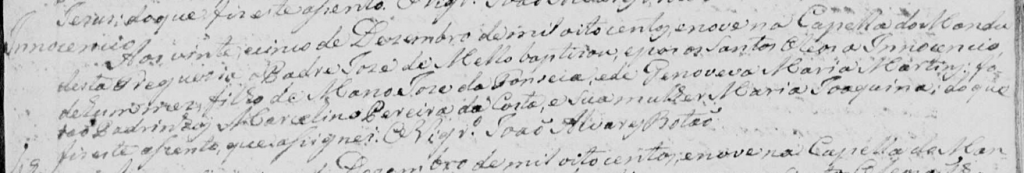 Jesus; do que fiz este asento. O Vigr.º João Alvarez
Innocencio
Aos vinte e cinco de Dezembro de mil oitocentos, e nove na Capella do Mandu
desta Freguezia o Padre Joze de Mello baptizou, e poz os Santos Oleos a Innocencio,
de hum mez, filho de Mano Joze da Fonseca, e de Genoveva Maria Martins; fo
rão Padrinhos Marcelino Pereira da Costa, e sua mulher Maria Joaquina; do que
fiz este asento, que asignei. O Vigr.º João Alvarez Botão
Dezembro de mil oitocentos, e nove na Capella do Man